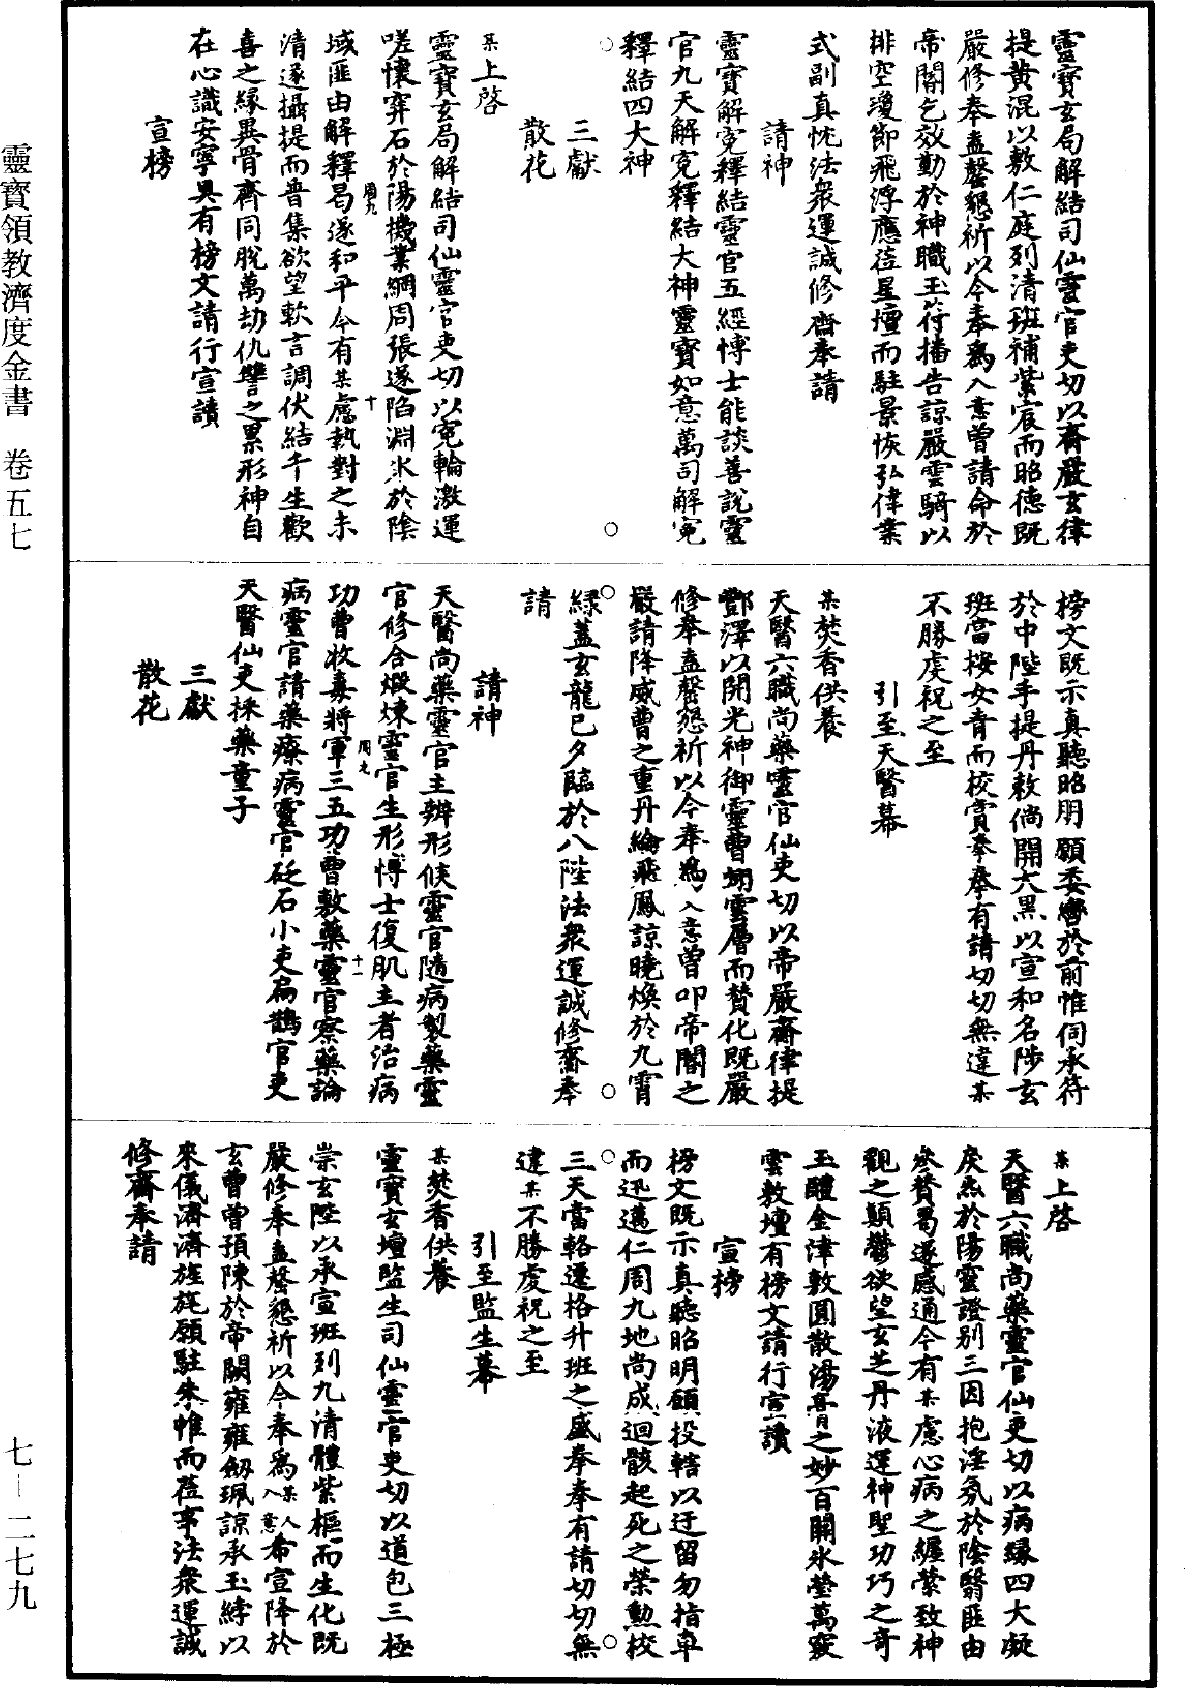 靈寶領教濟度金書　卷五七
七－二七九
靈寶玄局解結司仙靈官吏切以齋嚴玄律
提黃混以敷仁庭列清班補紫宸而昭德既
嚴修奉盍罄懇祈以今奉為入意曾請命於
帝閽乞效勤於神職玉符播告諒嚴雲騎以
排空瓊節飛浮應莅星壇而駐景恢弘偉業
式副真忱法眾運誠修齋奉請
請神
靈寶解冤釋結靈官五經博士能談善說靈
官九天解冤釋結大神靈寶如意萬司解冤
釋結四大神
三獻
散花
某上啓
靈寶玄局解結司仙靈官吏切以冤輪激運
嗟懷穽石於陽機業網周張遂陷淵氷於陰
域匪由解釋曷遂和平今有某慮執對之未
清遂攝提而普集欲望軟言調伏結千生歡
喜之緣異骨齊同脫萬劫仇讐之累形神自
在心識安寧具有榜文請行宣讀
宣榜
榜文既示真聽昭明願委轡於前帷伺承符
於中陛手提丹敕倘開大黑以宣和名陟玄
班當按女青而校賞奉奉有請切切無違某
不勝虔祝之至
引至天醫幕
某焚香供養
天醫六職尚藥靈官仙吏切以帝嚴齋律提
酆澤以開光神御靈曹翊雲層而贊化既嚴
修奉盍罄懇祈以今奉為入意曾叩帝閽之
嚴請降威曹之重丹綸飛鳳諒曉煥於九霄
綠蓋玄龍已夕臨於八陛法眾運誠修齋奉
請
請神
天醫尚藥靈官主辨形候靈官隨病製藥靈
官修合煅煉靈官生形博士復肌主者治病
功曹收毒將軍三五功曹敷藥靈官察藥論
病靈官請藥療病靈官砭石小吏扁鵲官吏
天醫仙吏採藥童子
三獻
散花
某上啓
天醫六職尚藥靈官仙吏切以病緣四大凝
戾炁於陽靈證別三因抱淫氛於陰翳匪由
參贊曷遂感通今有某慮心病之纏縈致神
觀之顛鬱欲望玄芝丹液運神聖功巧之奇
玉醴金津敷圓散湯膏之妙百關氷瑩萬竅
雲敷壇有榜文請行宣讀
宣榜
榜文既示真聽昭明願投轄以迂留勿指車
而迅邁仁周九地尚成迴骸起死之榮勲校
三天當輅遷格升班之盛奉奉有請切切無
違某不勝虔祝之至
引至監生幕
某焚香供養
靈寶玄壇監生司仙靈官吏切以道包三極
崇玄陛以承宣班列九清體紫樞而生化既
嚴修奉盍罄懇祈以今奉為某人入意希宣降於
玄曹曾預陳於帝闕雍雍劒珮諒承玉綍以
來儀濟濟旌旄願駐朱帷而莅事法眾運誠
修齋奉請